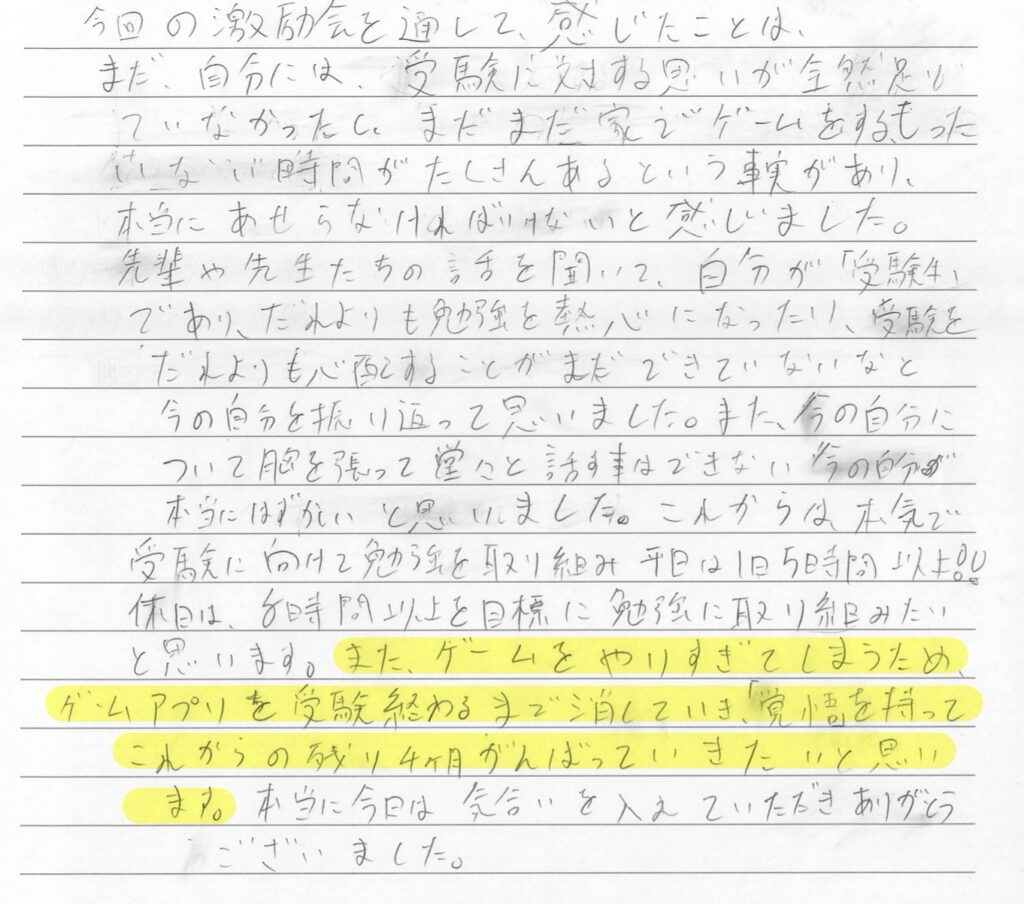 今回の激励会を通して、感じたことは、
まだ、自分には、受験に対する思いが全然足り
ていなかったし、まだまだ家でゲームをするもった
いない時間がたくさんあるという事実があり、
本当にあせらなければいけないと感じました。
先輩や先生たちの話を聞いて、自分が「受験生」
であり、だれよりも勉強を熱心になったり、受験を
だれよりも心配することがまだできていないなと
今の自分を振り返って思いました。また、今の自分に
ついて胸を張って堂々と話す事はできない今の自分が
本当にはずかしいと思いました。これからは、本気で
受験に向けて勉強を取り組み平日は1日5時間以上!!
休日は、8時間以上を目標に勉強に取り組みたい
と思います。また、ゲームをやりすぎてしまうため、
ゲームアプリを受験終わるまで消していき、「覚悟を持って
これからの残り4ヶ月がんばっていきたいと思い
ます。本当に今日は気合いを入れていただきありがとう
ございました。